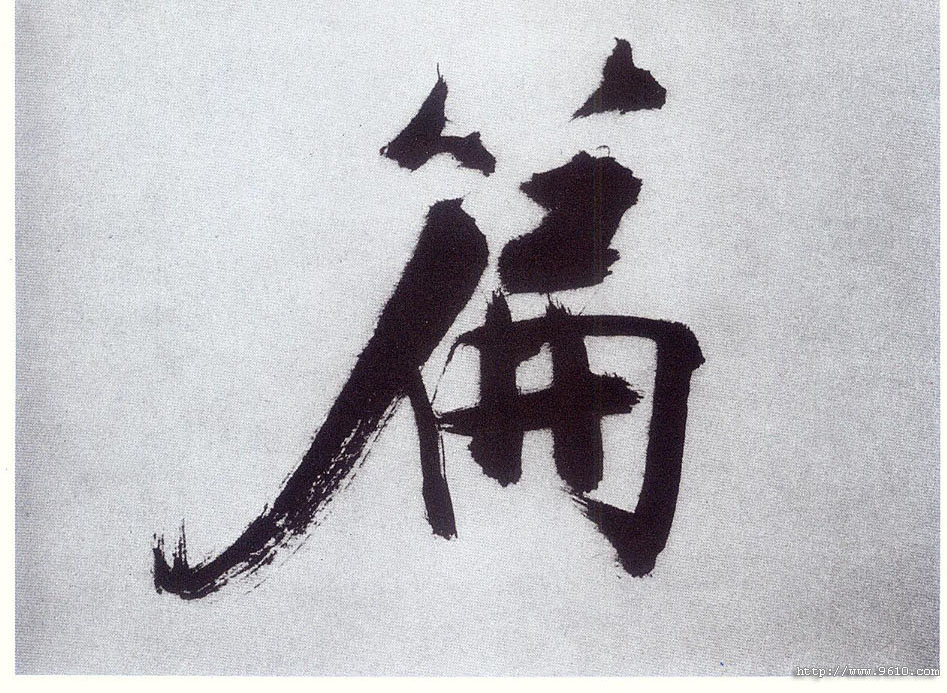 篇
http://www.9610.com